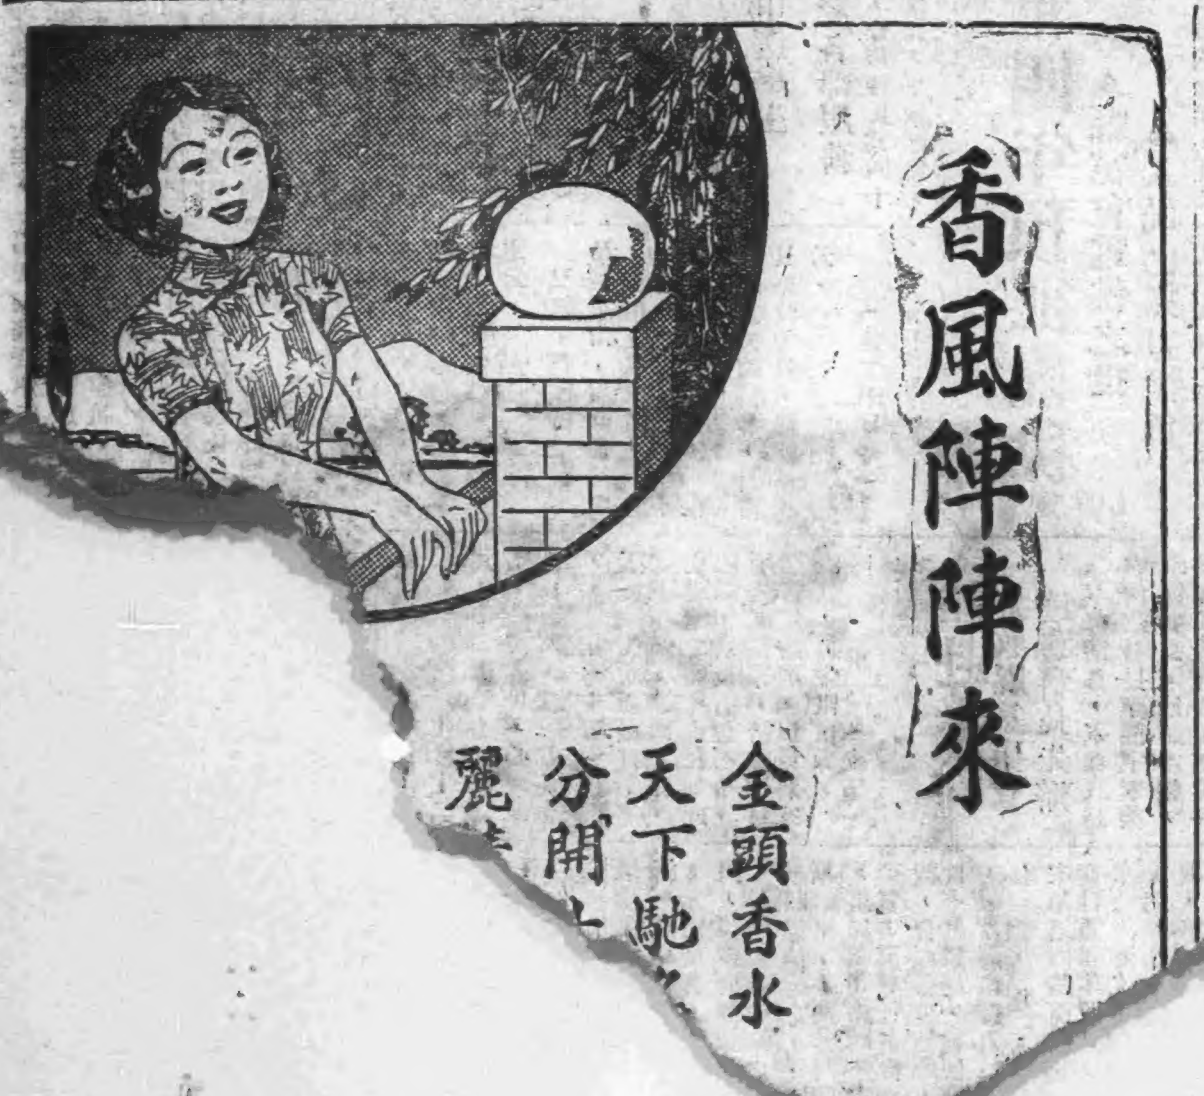 香風陣陣來
金頭香水
天下馳
分開
麗